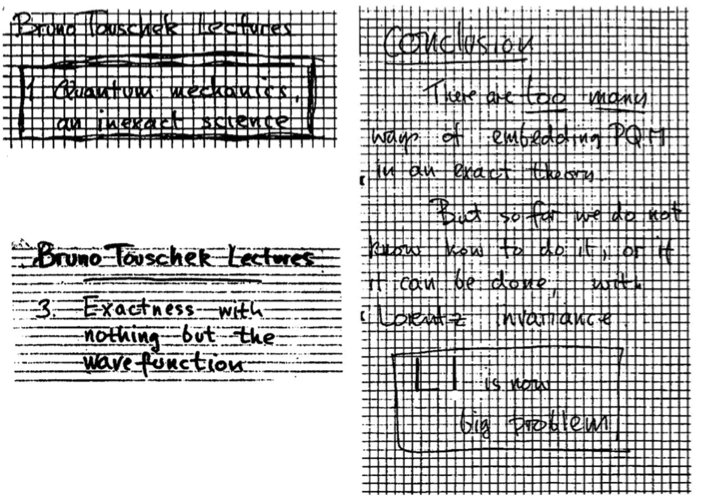 Bruno Touschek Lectures
1 Quantum mechanics,
an inexact science
Bruno Touschek Lectures
3. Exactness with
nothing but the
wavefunction
Conclusion
There are too many
ways of embedding PQM
in an exact theory.
But so far we do not
know how to do it, or if
it can be done, with
Lorentz invariance
LI is now
big problem